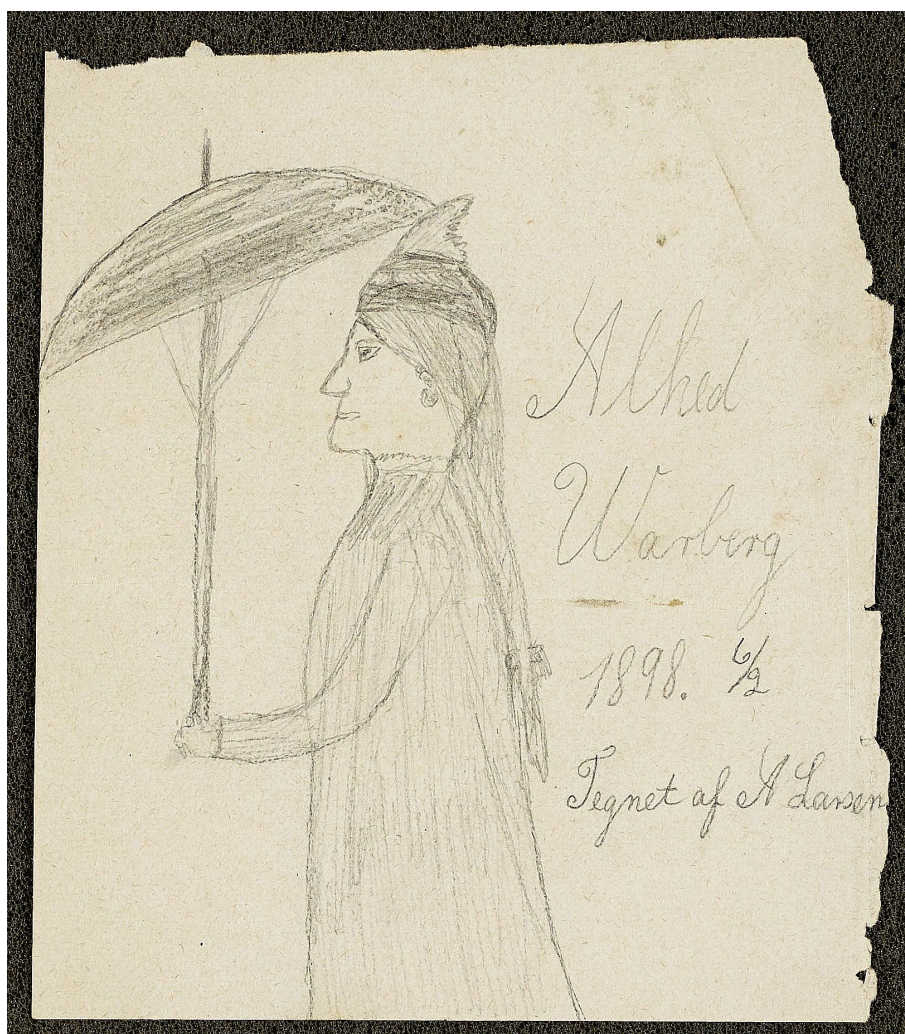 Alhed
Warberg
1898. 6/2
Tegnet af A Larsen